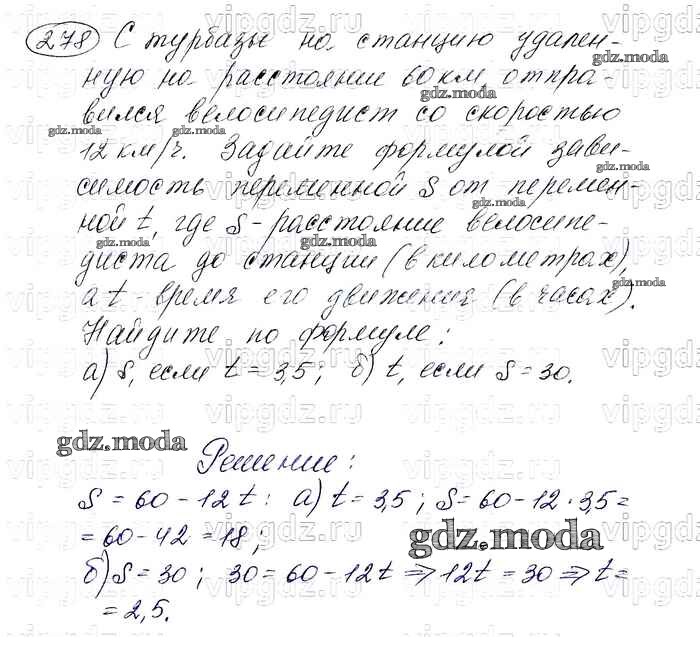 278 С турбазы на станцию удален-
ную на расстояние 60 км, отпра-
вился велосипедист со скоростью
12 км/ч. Задайте формулой зави-
симость переменной S от перемен-
ной t, где S - расстояние велосипе-
диста до станции (в километрах),
а t - время его движения (в часах).
Найдите по формуле:
а) S, если t = 3,5; б) t, если S = 30.
gdz.moda
Решение:
S = 60 - 12t: а) t = 3,5; S = 60 - 12 · 3,5 =
= 60 - 42 = 18;
gdz.moda
б) S = 30; 30 = 60 - 12t ⇒ 12t = 30 ⇒ t =
= 2,5.